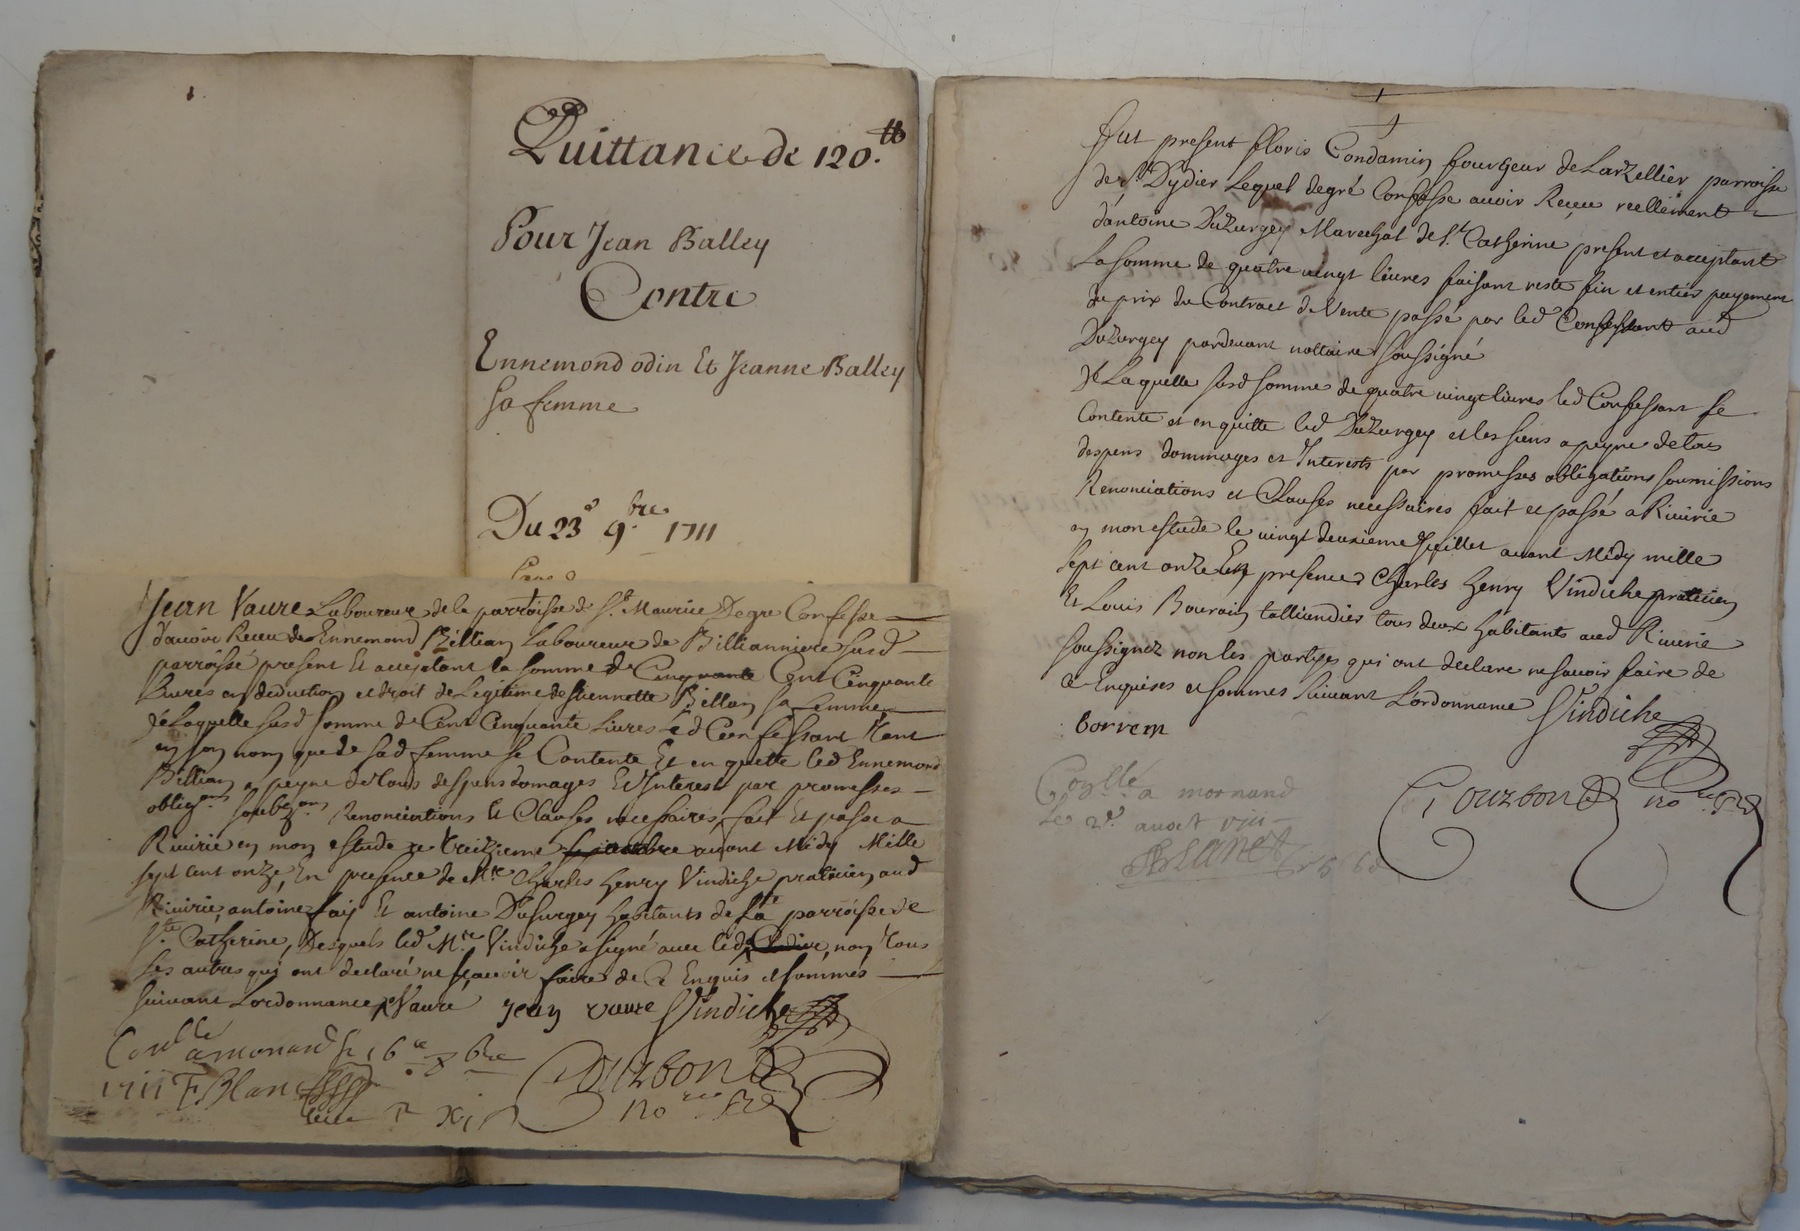 Quittance de 120.tt
Pour Jean Balley
Contre
Ennemond odin Et Jeanne Balley
sa femme
Du 23e 9.bre 1711
Jean Vaure Laboureur de la parroisse de St. Maurice De gre Confesse
d'avoir Receu de Ennemond Billian Laboureur de Billianniere susd
parroisse present Et acceptant la somme de Cinquante Cent Cinquante
Livres en deduction et droit de Legitime de Billian sa femme
de Laquelle susd somme de Cent Cinquante Livres Led Confessant tant
en son nom que de sad femme se Contente Et en quette led Ennemond
Billian a peyne de tous despens domages Et Interest par promesses
oblig.ons soubz.ons Renonciations Et Clauses necessaires, fait Et passé a
Riuirie en mon estude ce treizieme avant Midy Mille
sept cent onze, En presence de Mre Charles Henry Vindiche praticien aud
Riuirie, antoine fay Et antoine DuSurgey habitants de La parroisse de
Ste Catherine, Desquels led Mre Vindiche a signé avec led non tous
Les autres qui ont declaré ne sçavoir faire de ce Enquis et sommés
suivant Lordonnance Vaure Jean vaure Vindiche
Conllé a mornand le 16e 8bre
1711 F. Blanc
Courbon
no.re
Fut present floris Condamin fourgeur de Larzellier parroisse
de St. Dydier Lequel de gré Confesse auoir Receu reellement
d'antoine DuZurgey Marechal de St. Catherine present et acceptant
La somme de quatre vingt liures faisant reste fin et entier payement
du prix du Contract de Vente passé par led Confessant aud
DuZurgey pardeuant nottaire soussigné
De Laquelle susd somme de quatre vingt liures led Confessant se
Contente et en quitte led DuZurgey et les siens a peyne de tous
despens dommages et Interests par promesses obligations soumissions
Renonciations et Clauses necessaires fait et passé a Riuirie
en mon estude le vingt deuxieme Juillet auant Midy mille
sept cent onze En presence Charles Henry Vindiche praticien
Et Louis Bourrin talliandier tous deux habitants aud Riuirie
soussignez non les partyes qui ont declare ne sauoir faire de
ce Enquises et sommes suiuant Lordonnance Vindiche
borrem
Conllé a mornand
le 2e aoust
Blanc
Courbon no.re